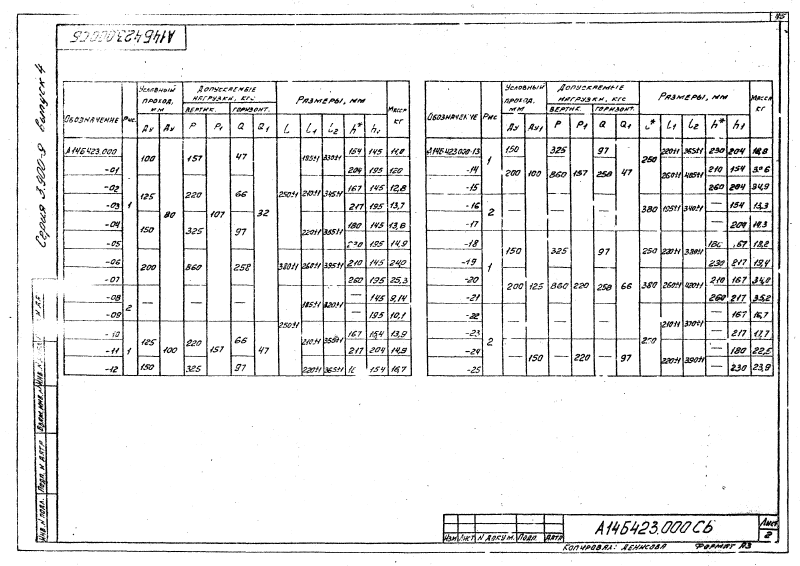 45
А14Б423.000СБ
Серия 3.900-9 выпуск 4
Обозначение Рис. Условный проход, мм Допускаемые нагрузки, кгс Размеры, мм Масса кг
вертик. горизонт.
Ду Ду P P1 Q Q1 L L1 L2 h* h1
А14Б423.000 1 100 80 157 107 47 32 250±1 195±1 330±1 154 145 11,0
-01 204 195 12,0
-02 125 220 66 210±1 345±1 167 145 12,8
-03 217 195 13,7
-04 150 325 97 220±1 355±1 180 145 13,8
-05 195 14,9
-06 200 860 258 380±1 260±1 395±1 210 145 24,0
-07 260 195 25,3
-08 2 — — — 250±1 185±1 320±1 — 145 9,14
-09 — 195 10,1
-10 1 125 100 220 157 66 47 210±1 358±1 167 154 13,9
-11 217 204 14,9
-12 150 325 97 220±1 365±1 154 16,7
Обозначение Рис Условный проход, мм Допускаемые нагрузки, кгс Размеры, мм Масса кг
вертик. горизонт.
Ду Ду1 P P1 Q Q1 L* L1 L2 h* h1
А14Б423.000-13 1 150 100 325 157 97 47 250 220±1 365±1 230 204 18,8
-14 200 860 258 380 260±1 405±1 210 154
-15 260 204 34,9
-16 2 — — — 195±1 340±1 — 154 13,3
-17 — 204 14,3
-18 1 150 125 325 220 97 66 250 220±1 380±1 18,2
-19 230 217 19,4
-20 200 860 258 380 260±1 420±1 210 167 34,0
-21 260 217 35,2
-22 2 — — — 210±1 370±1 — 167 16,7
-23 — 217 17,7
-24 — 150 — 220 — 97 220±1 390±1 — 180 22,5
-25 — 230 23,9
Инв. № подл. Подп. и дата Взам. инв. №
Изм Лист № докум. Подп. Дата
А14Б423.000 СБ
Лист
2
Копировал: Денисова Формат А3